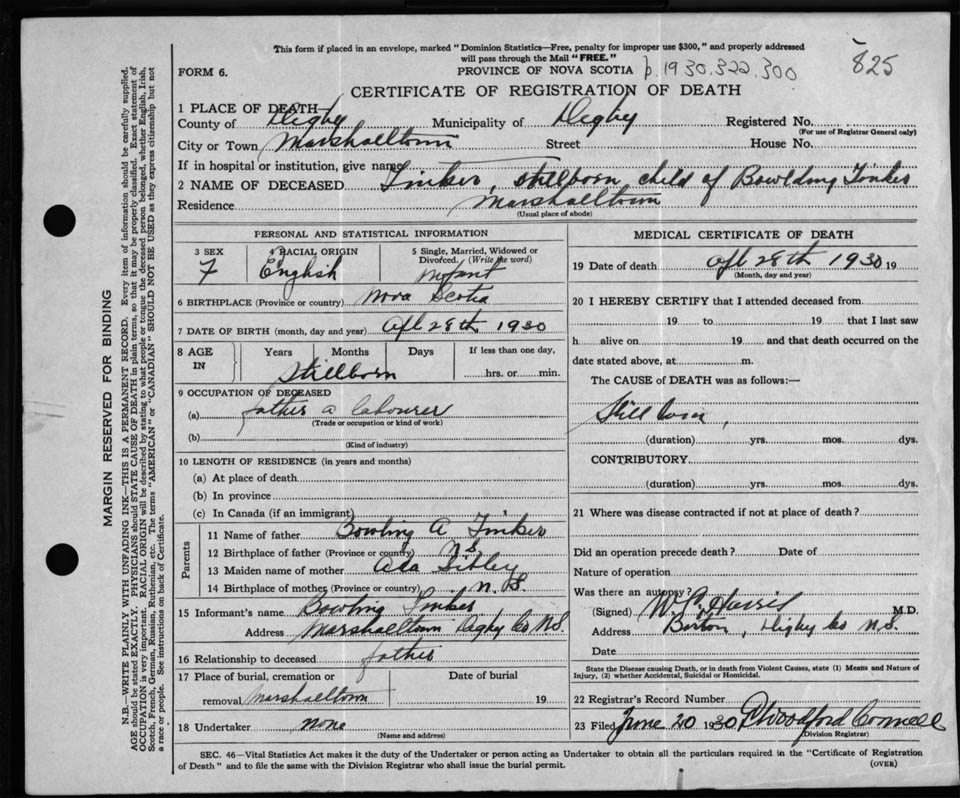 This form if placed in an envelope, marked "Dominion Statistics—Free, penalty for improper use $300," and properly addressed
will pass through the Mail "FREE."
825
FORM 6.
PROVINCE OF NOVA SCOTIA p. 1930.322.300
CERTIFICATE OF REGISTRATION OF DEATH
1 PLACE OF DEATH
County of Digby Municipality of Digby Registered No.
(For use of Registrar General only)
City or Town Marshalltown Street House No.
If in hospital or institution, give name
2 NAME OF DECEASED Timber, stillborn child of Bowlding Timber
Residence Marshalltown
(Usual place of abode)
PERSONAL AND STATISTICAL INFORMATION
3 SEX 4 RACIAL ORIGIN 5 Single, Married, Widowed or
Divorced. (Write the word)
F English Infant
6 BIRTHPLACE (Province or country) Nova Scotia
7 DATE OF BIRTH (month, day and year) Apl 28th 1930
8 AGE IN Years Months Days If less than one day,
Stillborn hrs. or min.
9 OCCUPATION OF DECEASED
(a) father a labourer
(Trade or occupation or kind of work)
(b)
(Kind of industry)
10 LENGTH OF RESIDENCE (in years and months)
(a) At place of death
(b) In province
(c) In Canada (if an immigrant)
Parents
11 Name of father Bowling A Timber
12 Birthplace of father (Province or country) N.S.
13 Maiden name of mother Ada Sibley
14 Birthplace of mother (Province or country) N.S.
15 Informant's name Bowling Timber
Address Marshalltown Digby Co N.S
16 Relationship to deceased father
17 Place of burial, cremation or Date of burial
removal Marshalltown 19
18 Undertaker none
(Name and address)
MEDICAL CERTIFICATE OF DEATH
19 Date of death Apl 28th 1930 19
(Month, day and year)
20 I HEREBY CERTIFY that I attended deceased from
19 to 19 that I last saw
h alive on 19 and that death occurred on the
date stated above, at m.
The CAUSE of DEATH was as follows:—
Still born,
(duration) yrs. mos. dys.
CONTRIBUTORY
(duration) yrs. mos. dys.
21 Where was disease contracted if not at place of death?
Did an operation precede death? Date of
Nature of operation
Was there an autopsy?
(Signed) Harris M.D.
Address Barton, Digby Co N.S.
Date
State the Disease causing Death, or in death from Violent Causes, state (1) Means and Nature of
Injury, (2) whether Accidental, Suicidal or Homicidal.
22 Registrar's Record Number
23 Filed June 20 1930 Woodford Connell
(Division Registrar)
SEC. 46—Vital Statistics Act makes it the duty of the Undertaker or person acting as Undertaker to obtain all the particulars required in the "Certificate of Registration
of Death" and to file the same with the Division Registrar who shall issue the burial permit. (OVER)
MARGIN RESERVED FOR BINDING
N.B.—WRITE PLAINLY WITH UNFADING INK—THIS IS A PERMANENT RECORD. Every item of information should be carefully supplied.
AGE should be stated EXACTLY. PHYSICIANS should STATE CAUSE OF DEATH in plain terms, so that it may be properly classified. Exact statement of
OCCUPATION is very important. RACIAL ORIGIN will be described by stating to what people or tongue the deceased person belonged, whether English, Irish,
Scotch, French, German, Russian, Ruthenian, etc. The terms "AMERICAN" or "CANADIAN" SHOULD NOT BE USED as they express citizenship but not
a race or people. See instructions on back of Certificate.